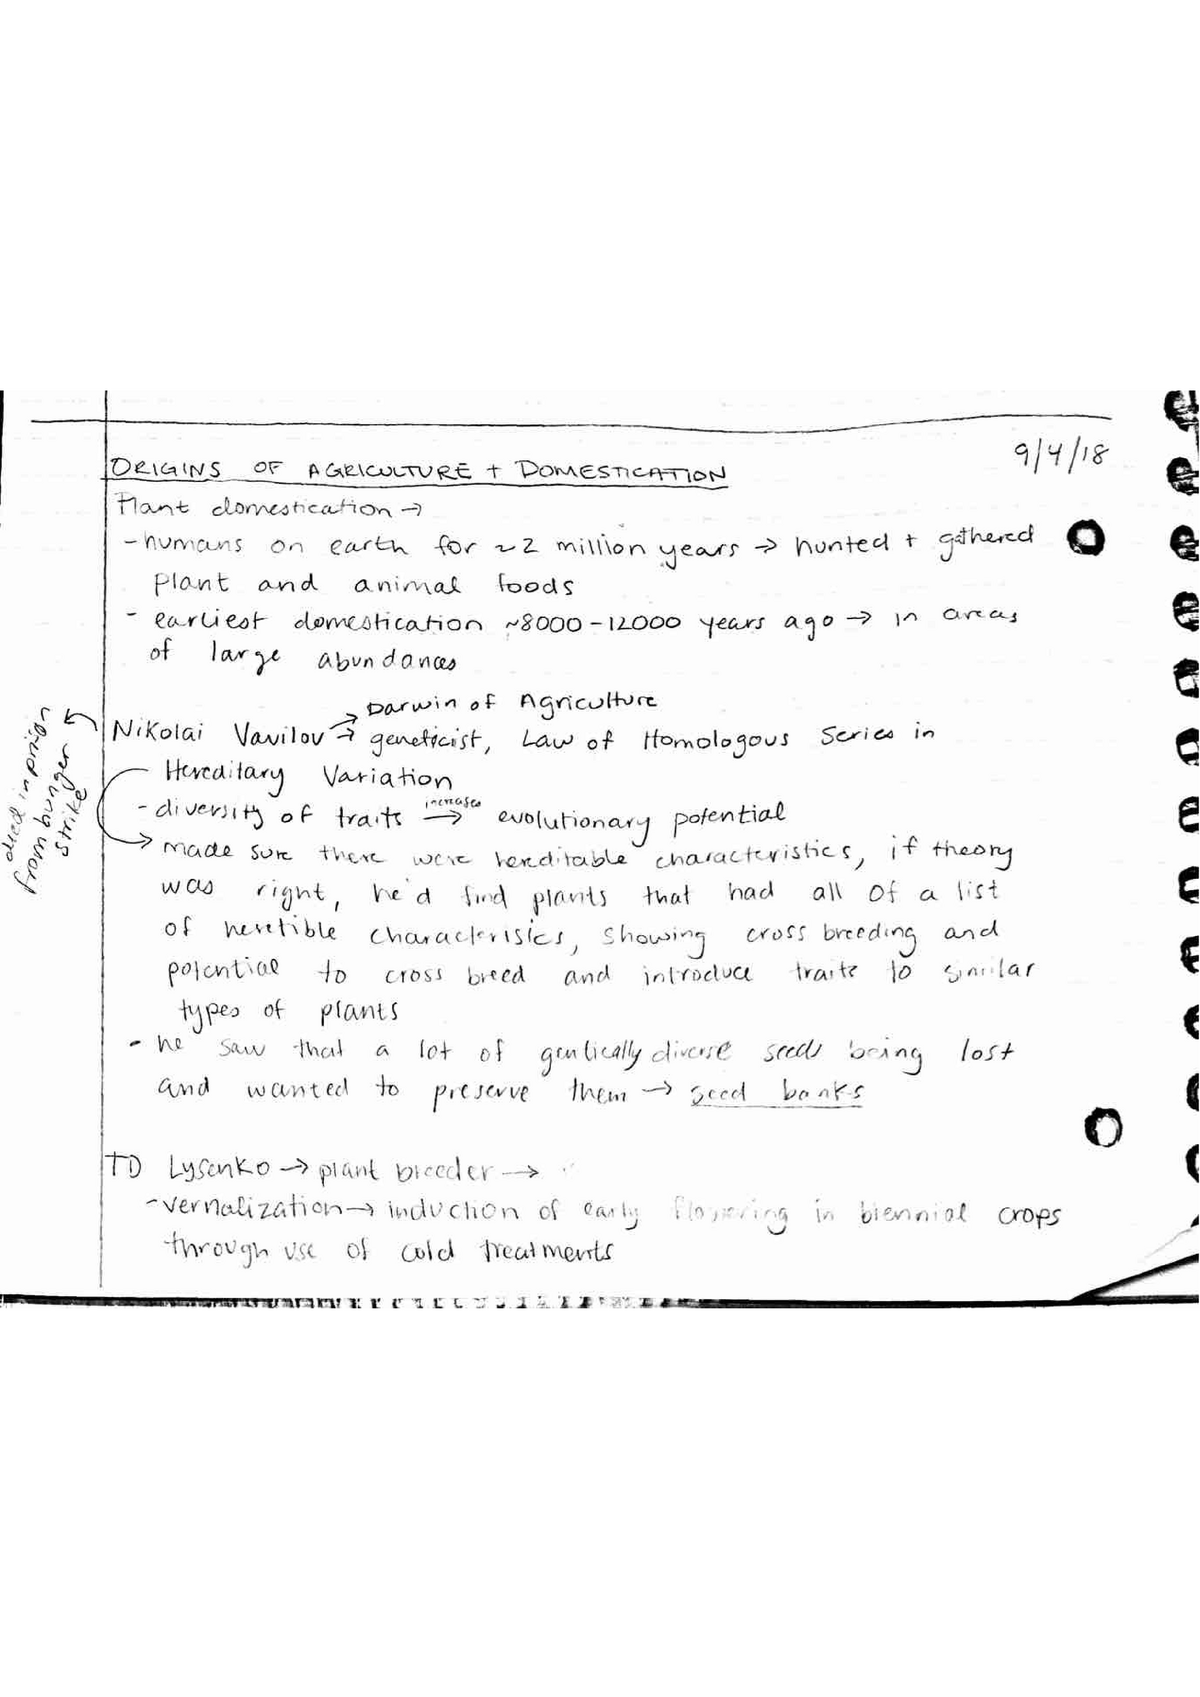 9/4/18
ORIGINS OF AGRICULTURE + DOMESTICATION
Plant domestication →
- humans on earth for ~2 million years → hunted + gathered
plant and animal foods
- earliest domestication ~8000-12000 years ago → in areas
of large abundances
→ Darwin of Agriculture
Nikolai Vavilov → geneticist, Law of Homologous Series in
Hereditary Variation
- diversity of traits increases → evolutionary potential
→ made sure there were hereditable characteristics, if theory
was right, he'd find plants that had all of a list
of heretible characterisics, showing cross breeding and
potential to cross breed and introduce traits to similar
types of plants
- he saw that a lot of gentically diverse seeds being lost
and wanted to preserve them → seed banks
died in prison
from hunger
strike
TD Lysenko → plant breeder →
- vernalization → induction of early flowering in biennial crops
through use of cold treatments